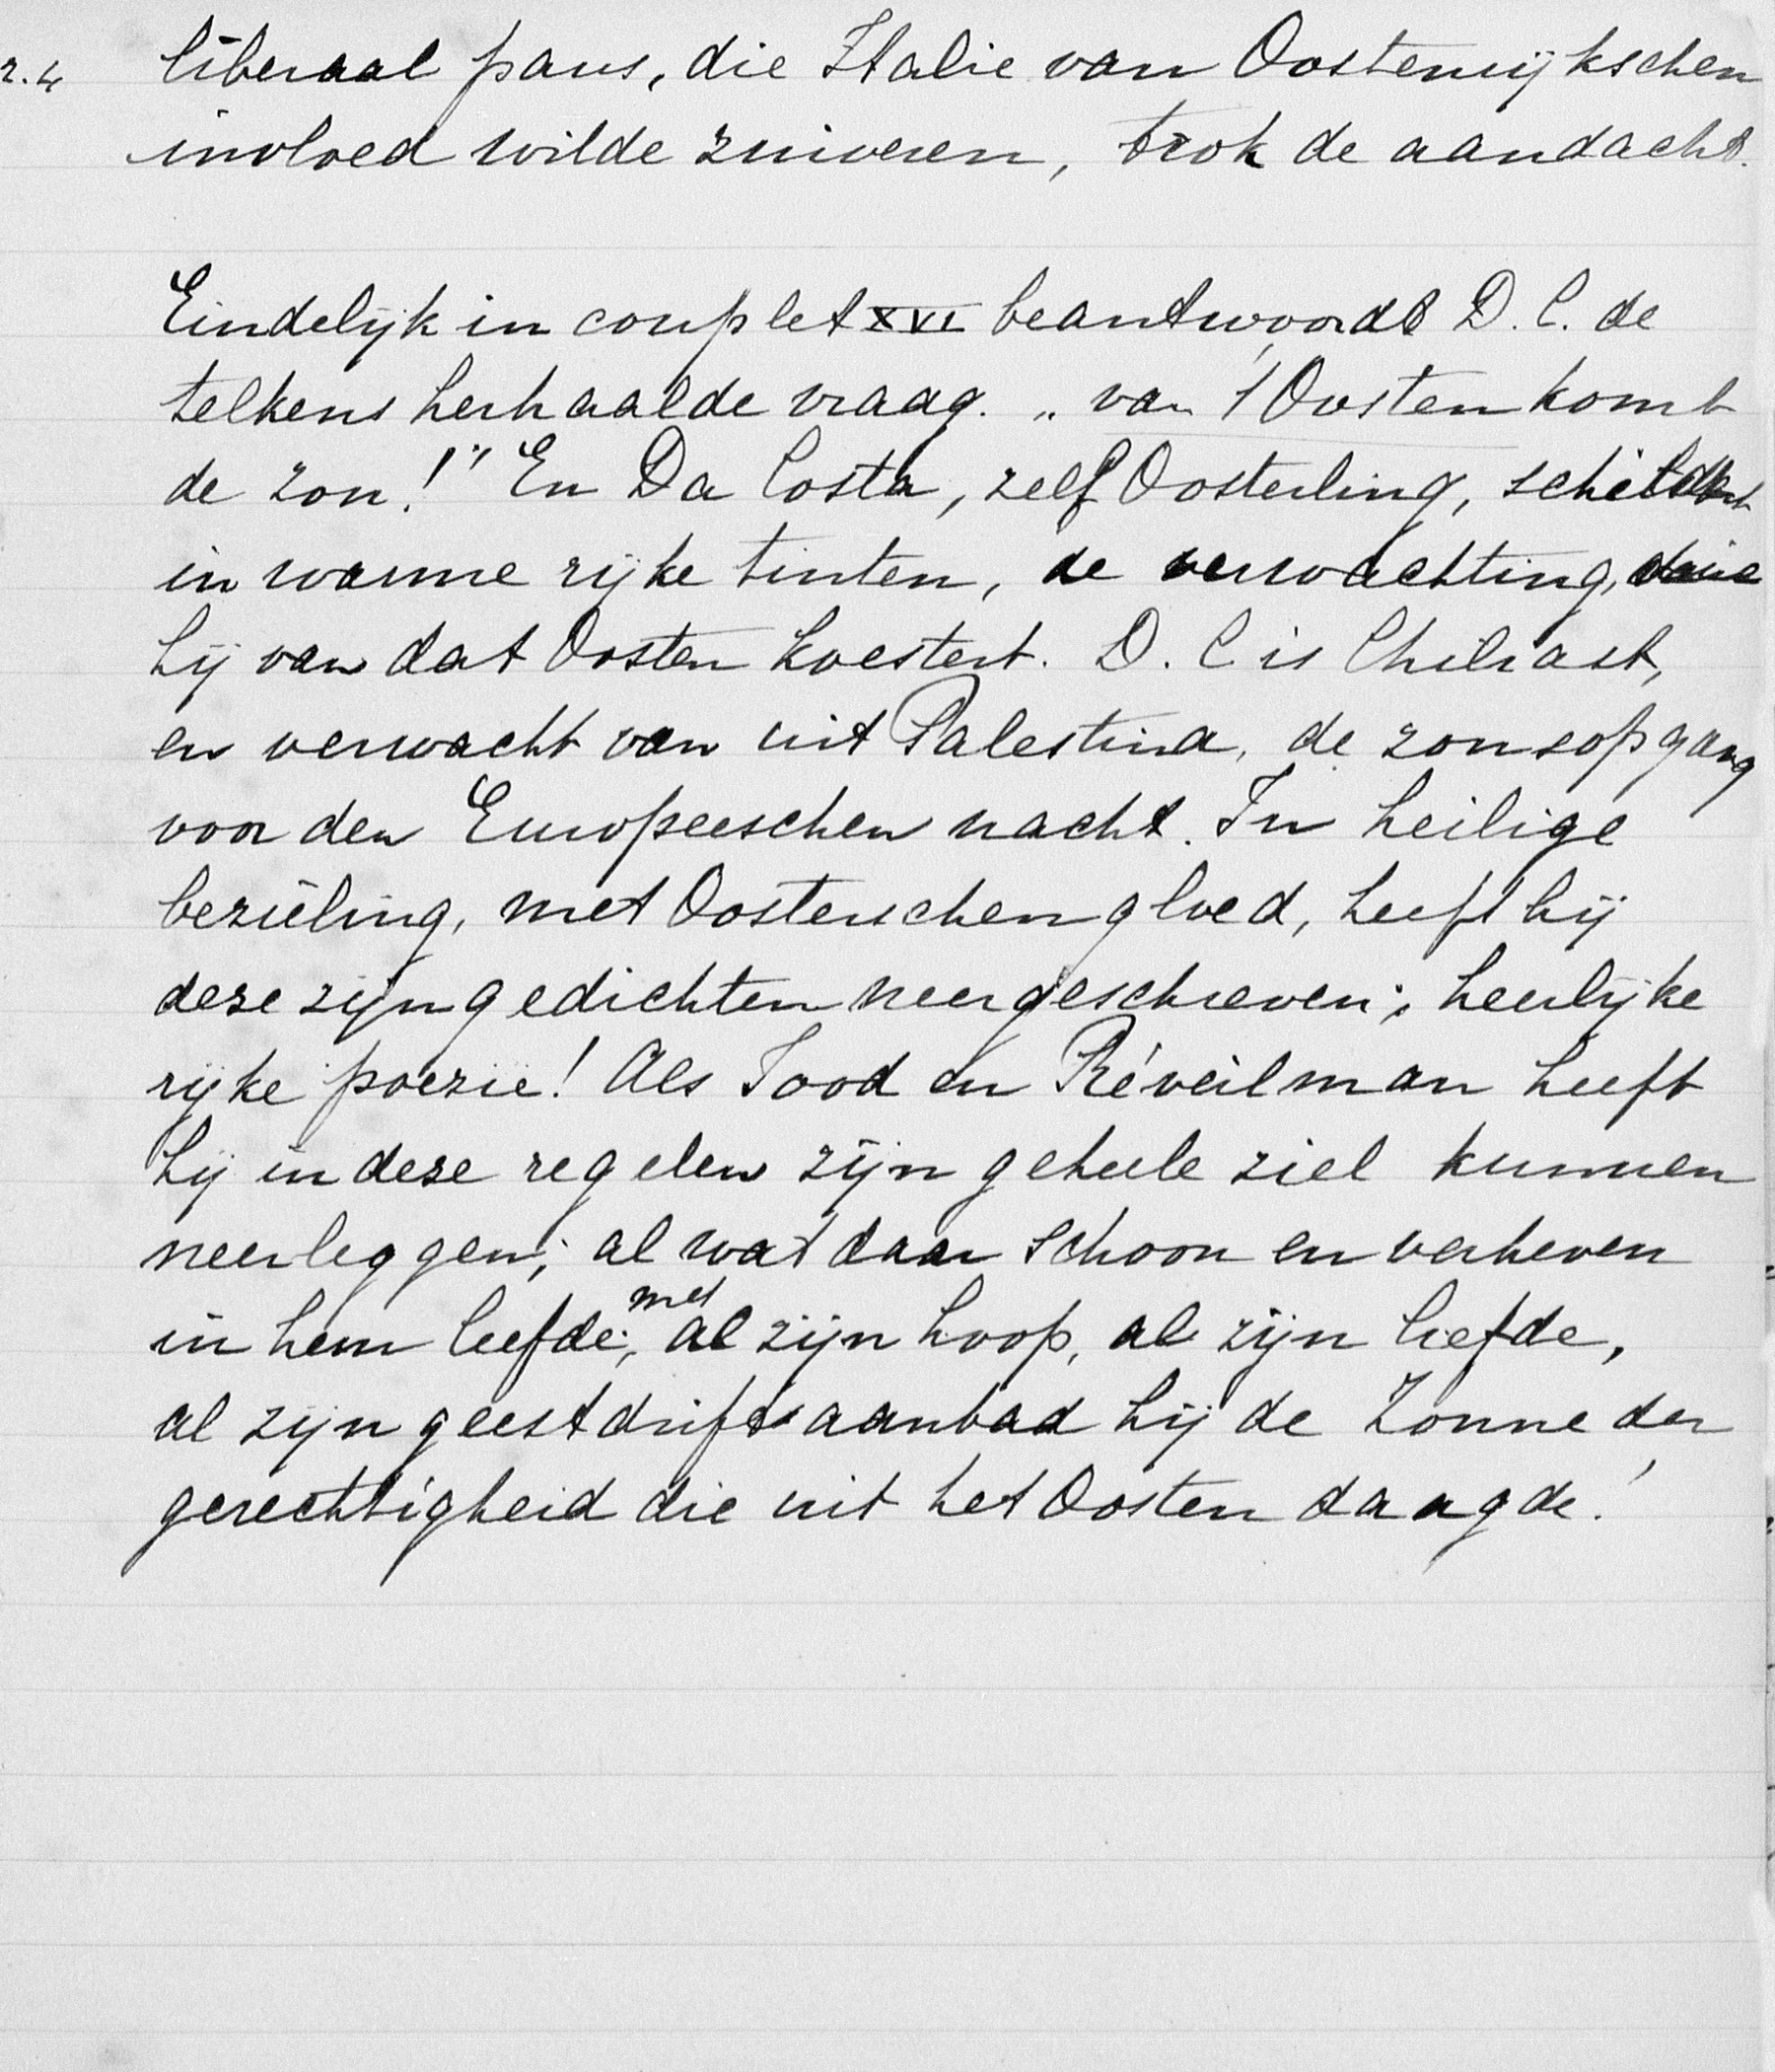 r.4 liberaal paus, die Italie van Oostenrijkschen
invloed wilde zuiveren, trok de aandacht.
Eindelijk in couplet XVI beantwoordt D. C. de
telkens herhaalde vraag. „van 't Oosten komt
de zon!" En Da Costa, zelf Oosterling, schildert
in warme rijke tinten, de verwachting, die
hij van dat Oosten koestert. D. C is Chiliast,
en verwacht van uit Palestina, de zonsopgang
voor den Europeeschen nacht. In heilige
bezieling, met Oosterschen gloed, heeft hij
deze zijn gedichten neergeschreven; heerlijke
rijke poëzie! Als Jood en Réveilman heeft
hij in deze regelen zijn geheele ziel kunnen
neerleggen; al wat daar schoon en verheven
in hem leefde; met al zijn hoop, al zijn liefde,
al zijn geestdrift aanbad hij de Zonne der
gerechtigheid die uit het Oosten daagde!